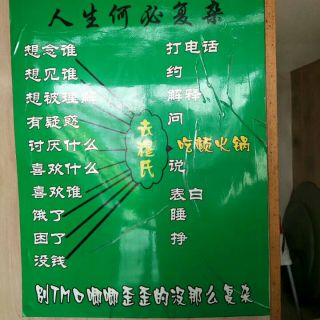 人生何必复杂
想念谁 打电话
想见谁 约
想被理解 解释
有疑惑 问
讨厌什么 吃顿火锅
喜欢什么 说
喜欢谁 表白
饿了 睡
困了 挣
没钱
袁程氏
别TMD唧唧歪歪的没那么复杂